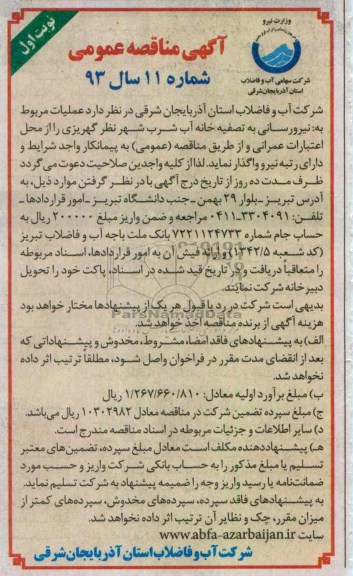 نوبت اول
وزارت نیرو
شرکت سهامی آب و فاضلاب
استان آذربایجان‌شرقی
آگهی مناقصه عمومی
شماره ۱۱ سال ۹۳
شرکت آب و فاضلاب استان آذربایجان شرقی در نظر دارد عملیات مربوط
به: نیرورسانی به تصفیه خانه آب شرب شهر نظر کهریزی را از محل
اعتبارات عمرانی و از طریق مناقصه (عمومی) به پیمانکار واجد شرایط و
دارای رتبه نیرو واگذار نماید. لذا از کلیه واجدین صلاحیت دعوت می گردد
ظرف مدت ده روز از تاریخ درج آگهی با در نظر گرفتن موارد ذیل، به
آدرس تبریز ـ بلوار ۲۹ بهمن ـ جنب دانشگاه تبریز ـ امور قراردادها ـ
تلفن: ۳۳۰۴۰۹۱-۰۴۱۱ مراجعه و ضمن واریز مبلغ ۲۰۰۰۰۰ ریال به
حساب جام شماره ۷۲۲۱۱۲۴۷۳۳ بانک ملت باجه آب و فاضلاب تبریز
(کد شعبه ۱۳۴۲/۵) و ارائه فیش آن به امور قراردادها، اسناد مربوطه
را متعاقباً دریافت و در تاریخ قید شده در اسناد، پاکت خود را تحویل
دبیرخانه شرکت نمایند.
بدیهی است شرکت در رد یا قبول هر یک از پیشنهادها مختار خواهد بود
هزینه آگهی از برنده مناقصه اخذ خواهد شد.
الف) به پیشنهادهای فاقد امضا، مشروط، مخدوش و پیشنهاداتی که
بعد از انقضای مدت مقرر در فراخوان واصل شود، مطلقاً ترتیب اثر داده
نخواهد شد.
ب) مبلغ برآورد اولیه معادل: ۱/۲۶۷/۶۶۰/۸۱۰ ریال
ج) مبلغ سپرده تضمین شرکت در مناقصه معادل ۱۰۳۰۲۹۸۲ ریال می‌باشد.
د) سایر اطلاعات و جزئیات مربوطه در اسناد مناقصه مندرج است.
هـ) پیشنهاددهنده مکلف است معادل مبلغ سپرده، تضمین‌های معتبر
تسلیم یا مبلغ مذکور را به حساب بانکی شرکت واریز و حسب مورد
ضمانت‌نامه یا رسید واریز وجه را ضمیمه پیشنهاد به شرکت تسلیم نماید.
به پیشنهادهای فاقد سپرده، سپرده‌های مخدوش، سپرده‌های کمتر از
میزان مقرر، چک و نظایر آن ترتیب اثر داده نخواهد شد.
سایت www.abfa-azarbaijan.ir
شرکت آب و فاضلاب استان آذربایجان شرقی